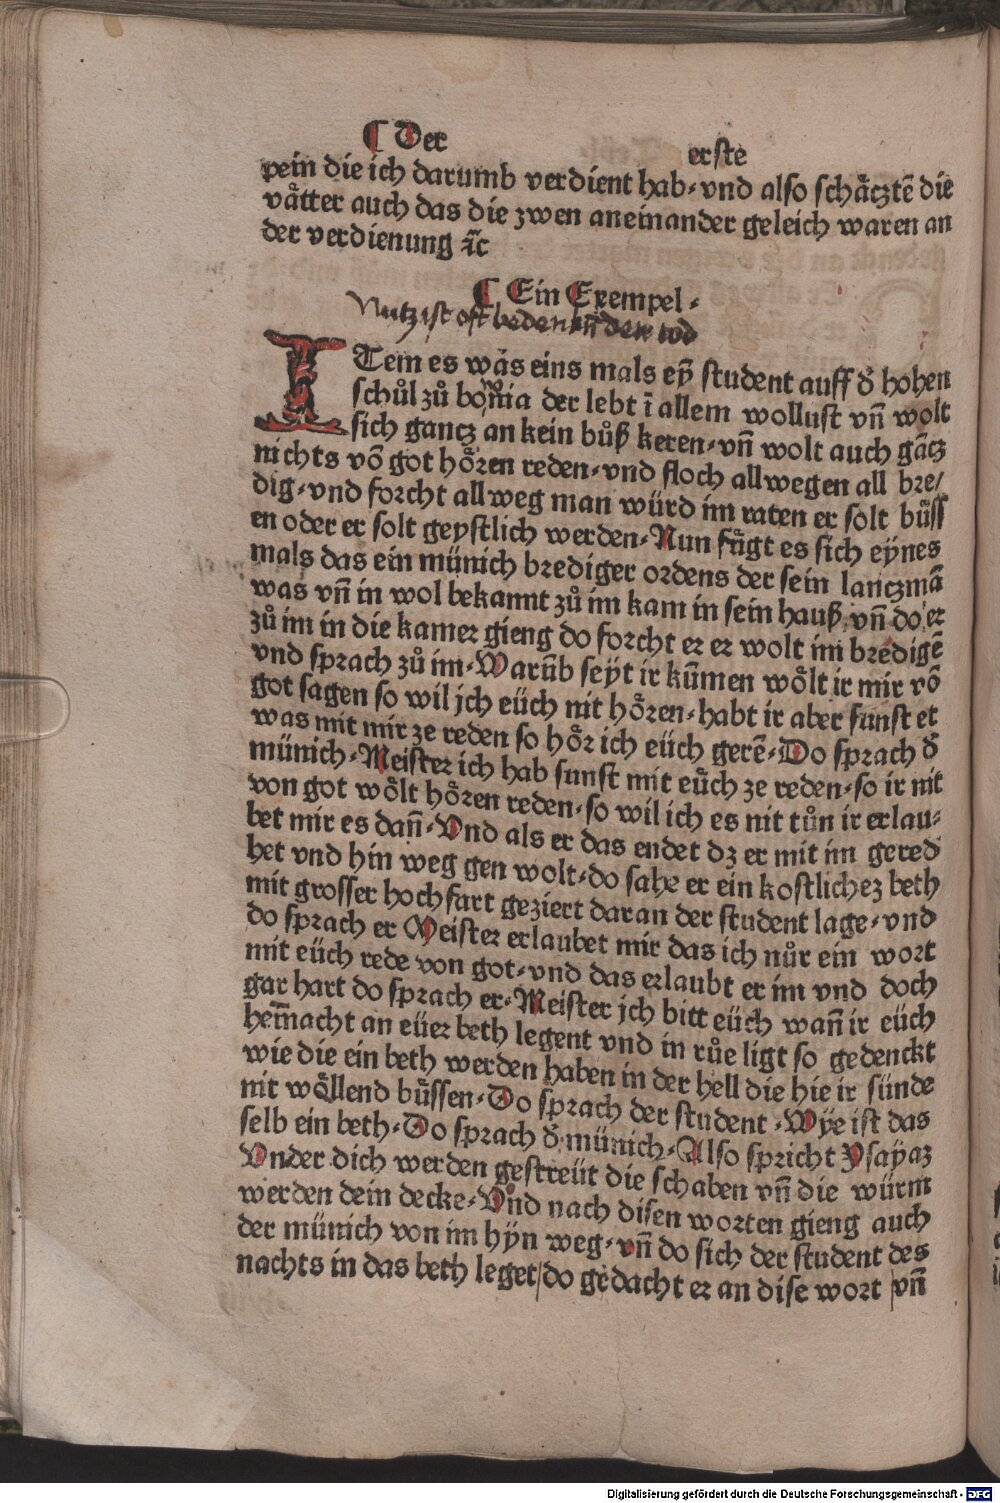 ¶ Der erste
pein die ich darumb verdient hab⸗vnd also schåtztē die
våtter auch das die zwen aneinander geleich waren an
der verdienung ⁊c̄
¶ Ein Exempel⸗
Nutz ist oft bedencken den tod
ITem es was eins mals eyn̄ student auff d̕ hohen
schůl zů bononia der lebt ī allem wollust vn̄ wolt
sich gantz an kein bůß keren⸗vn̄ wolt auch gātz
nichts vō got hôren reden⸗vnd floch allwegen all bre/
dig⸗vnd forcht allweg man würd im raten er solt büss
en oder er solt geystlich werden⸗Nun fůgt es sich eynes
mals das ein münich brediger ordens der sein lantzmā
was vn̄ in wol bekannt zů im kam in sein hauß vn̄ do er
zů im in die kamer gieng do forcht er er wolt im bredigē
vnd sprach zů im⸗Warūb seyt ir kūmen wôlt ir mir vō
got sagen so wil jch eüch nit hôren⸗habt ir aber sunst et
was mit mir ze reden so hôr ich eüch gerē⸗Do sprach d̕
münich⸗Meister ich hab sunst mit eüch ze reden⸗so ir nit
von got wôlt hôren reden⸗so wil ich es nit tůn ir erlau⸗
bet mir es dan̄⸗Vnd als er das endet dz er mit im gered
het vnd hin weg gen wolt⸗do sahe er ein kostlichez beth
mit grosser hochfart geziert daran der student lage⸗vnd
do sprach er Meister erlaubet mir das ich nůr ein wort
mit eüch rede von got⸗vnd das erlaubt er im vnd doch
gar hart do sprach er⸗Meister jch bitt eüch wan̄ ir eüch
hein̄acht an eüer beth legent vnd in růe ligt so gedenckt
wie die ein beth werden haben in der hell die hie ir sünde
nit wôllend büssen⸗Do sprach der student⸗Wÿe ist das
selb ein beth⸗Do sprach d̕ münich⸗Also spricht Ysayaz
Vnder dich werden gestreüt die schaben vn̄ die würm
werden dein decke⸗Vnd nach disen worten gieng auch
der münich von im hÿn weg⸗vn̄ do sich der student des
nachts in das beth leget do gedacht er an dise wort vn̄
Digitalisierung gefördert durch die Deutsche Forschungsgemeinschaft - DFG